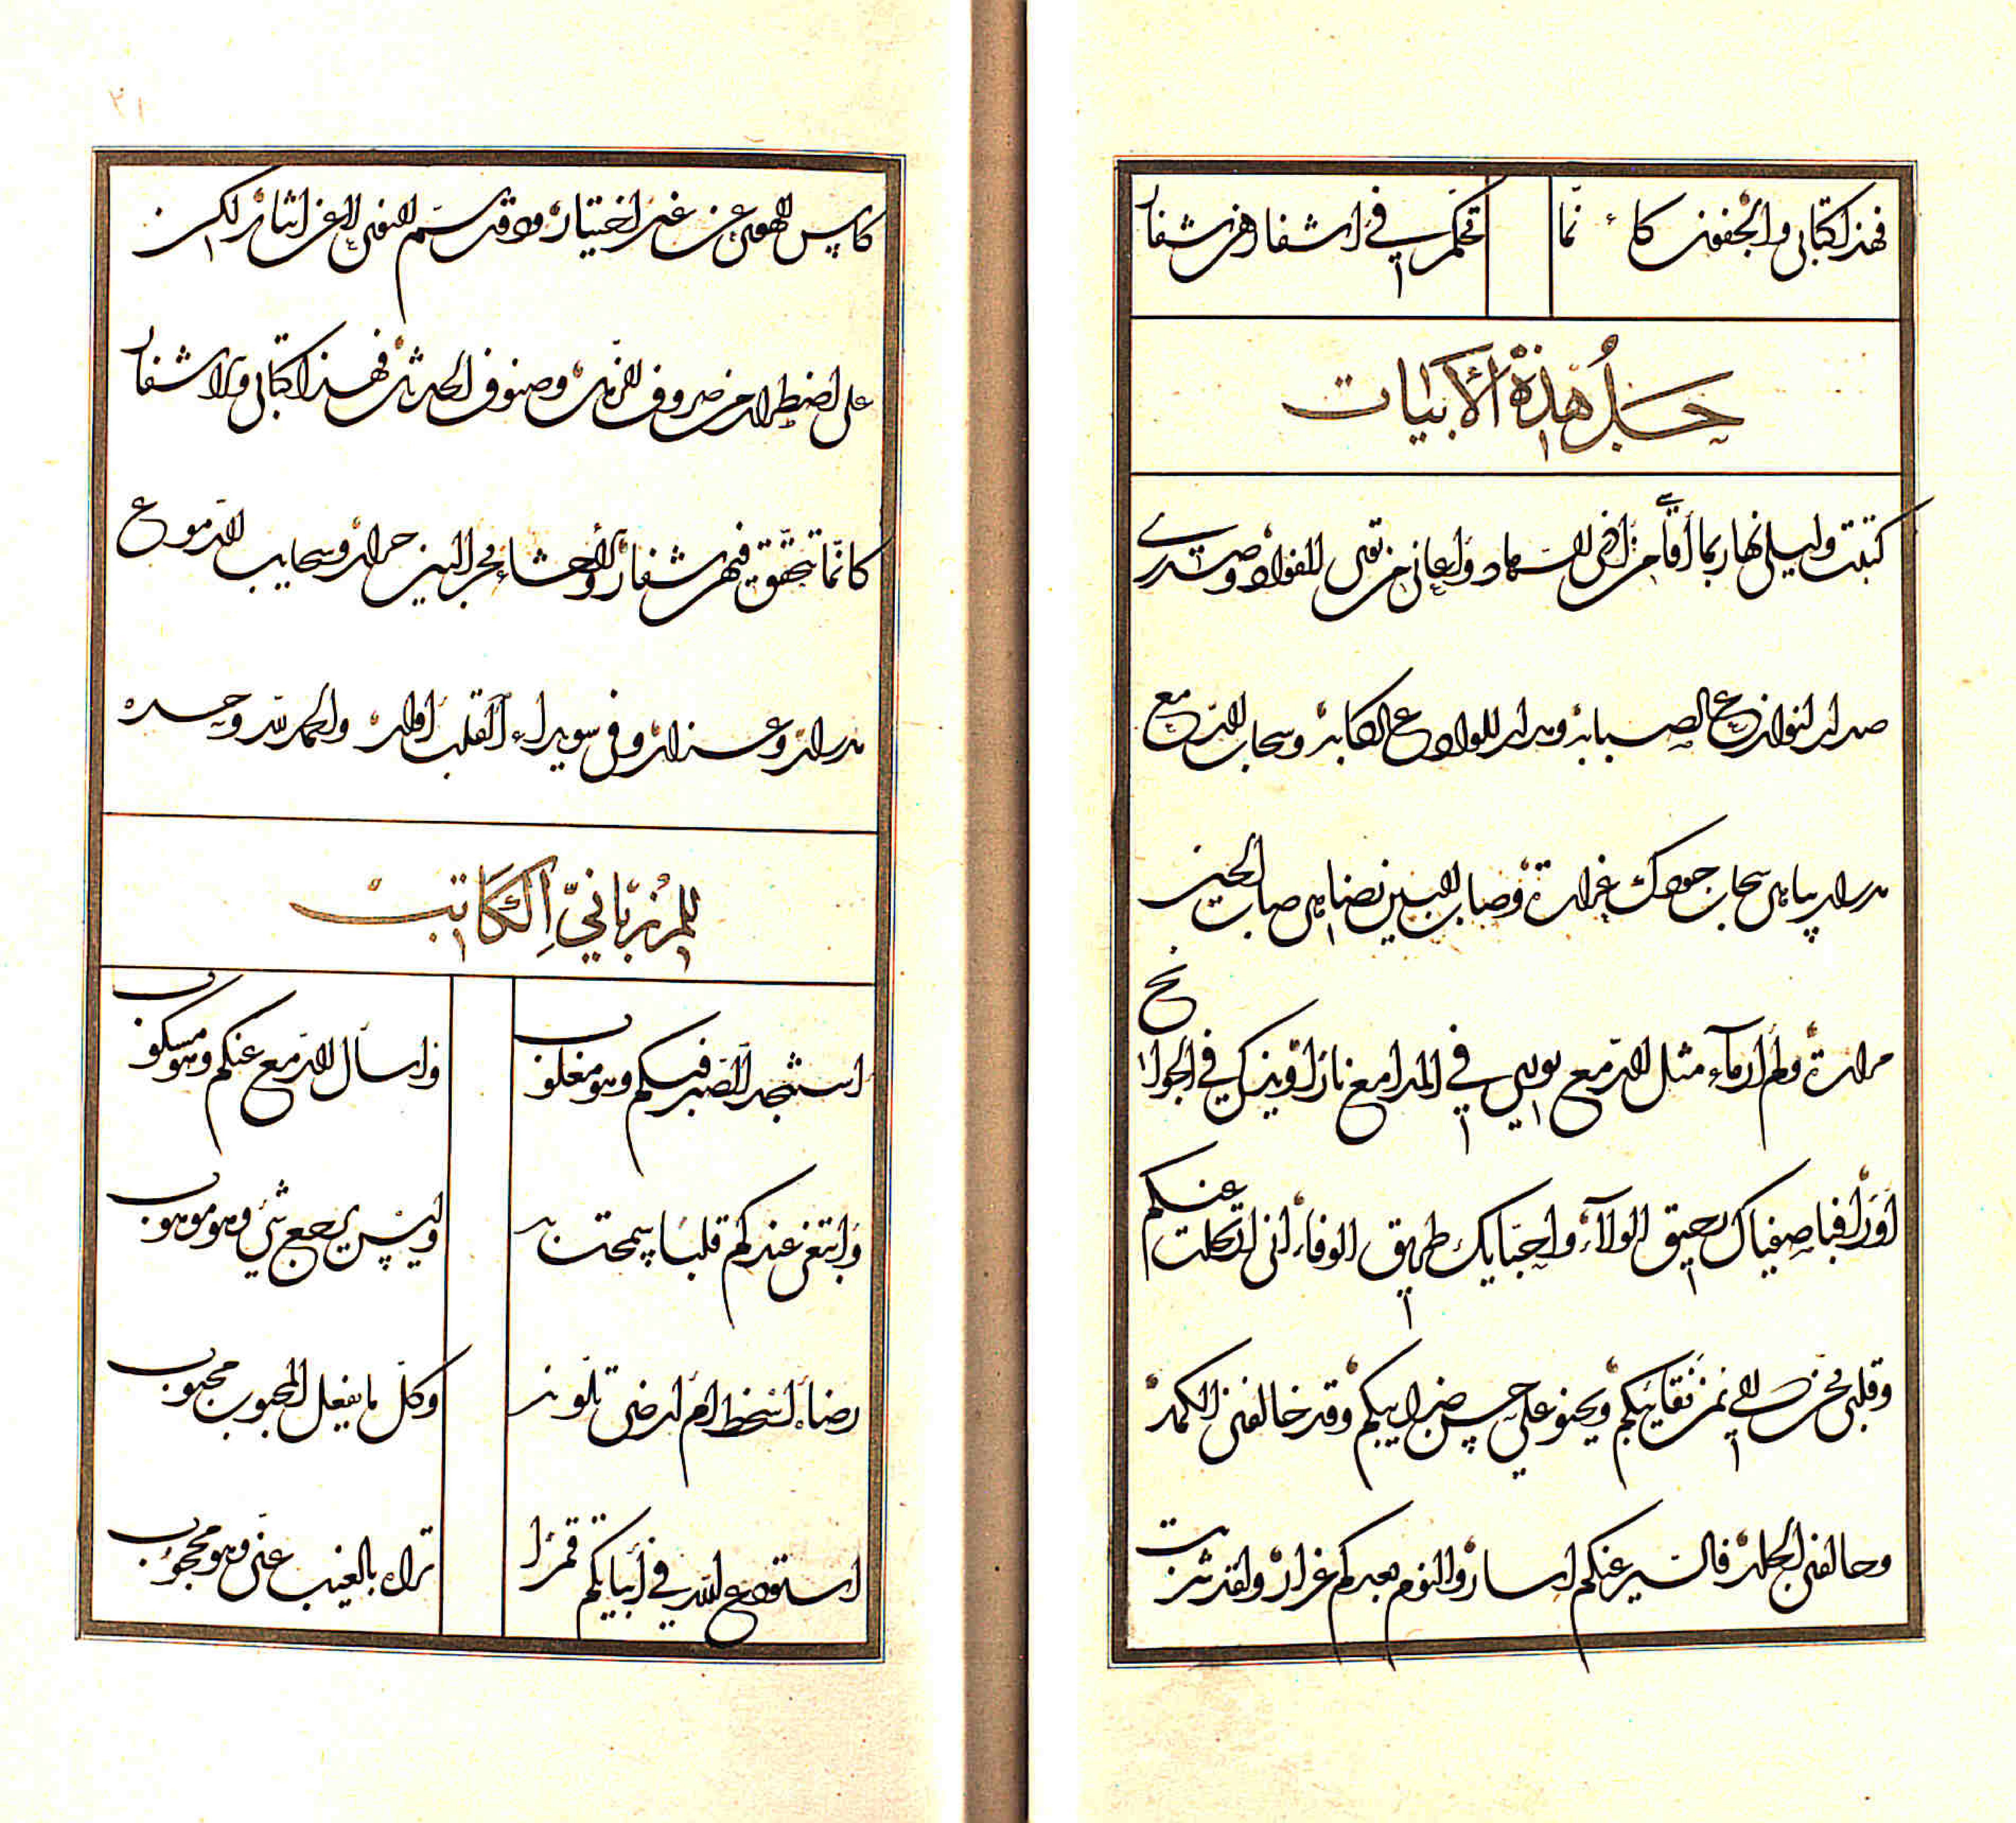 فهذا كتابي والجفون كأنما
تحكم في أشفارهن شفار
حل هذه الأبيات
كتبت وليلي نهار بما أقاسي من أذى السهاد وأعاني من تقى الفؤاد وصدري
صدار لنوازع الصبابة ومدار للواذع الكآبة وسحاب الدمع
مدرار يباهي سحاب جودك غزارة وصاب البين يضاهي صاب الحين
مرارة ولم أر ماء مثل الدمع يوري في المدامع نارا ويذكي في الجوانح
أوارا فيا صفياك بحقيق الولاء وأحبايك طريق الوفاء اني ارتحلت عنكم
وقلبي يحن الى ثمن نقايبكم ويحنو على حسن ضرايبكم وقد خالفني الكمد
وحالفني الجلد فالسير عنكم اسار والنوم بعدكم غرار ولقد شربت
٢١
كاس الهوى عن غير اختيار وقد يسم النوى لا عن ايثار لكن
على اضطرار من صروف الزمن وصنوف الحدثن فهذا كتابي ولا شفار
كانما تحقق فيهن شفار والاحشاء بحر البين حرار وسحايب الدموع
مدرار وعذار وفي سويداء القلب اوار والحمد لله وحده
للمرزباني الكاتب
استنجد الصبر فيكم وهو مغلوب
واسأل الدمع عنكم وهو مسكوب
وابتغي عندكم قلبا سمحت به
وليس يرجع شيء وهو موهوب
رضاء أسخط ام ارضى تلونه
وكل ما يفعل المحبوب محبوب
استودع الله في أبياتكم قمرا
تراه بالغيب عني وهو محجوب